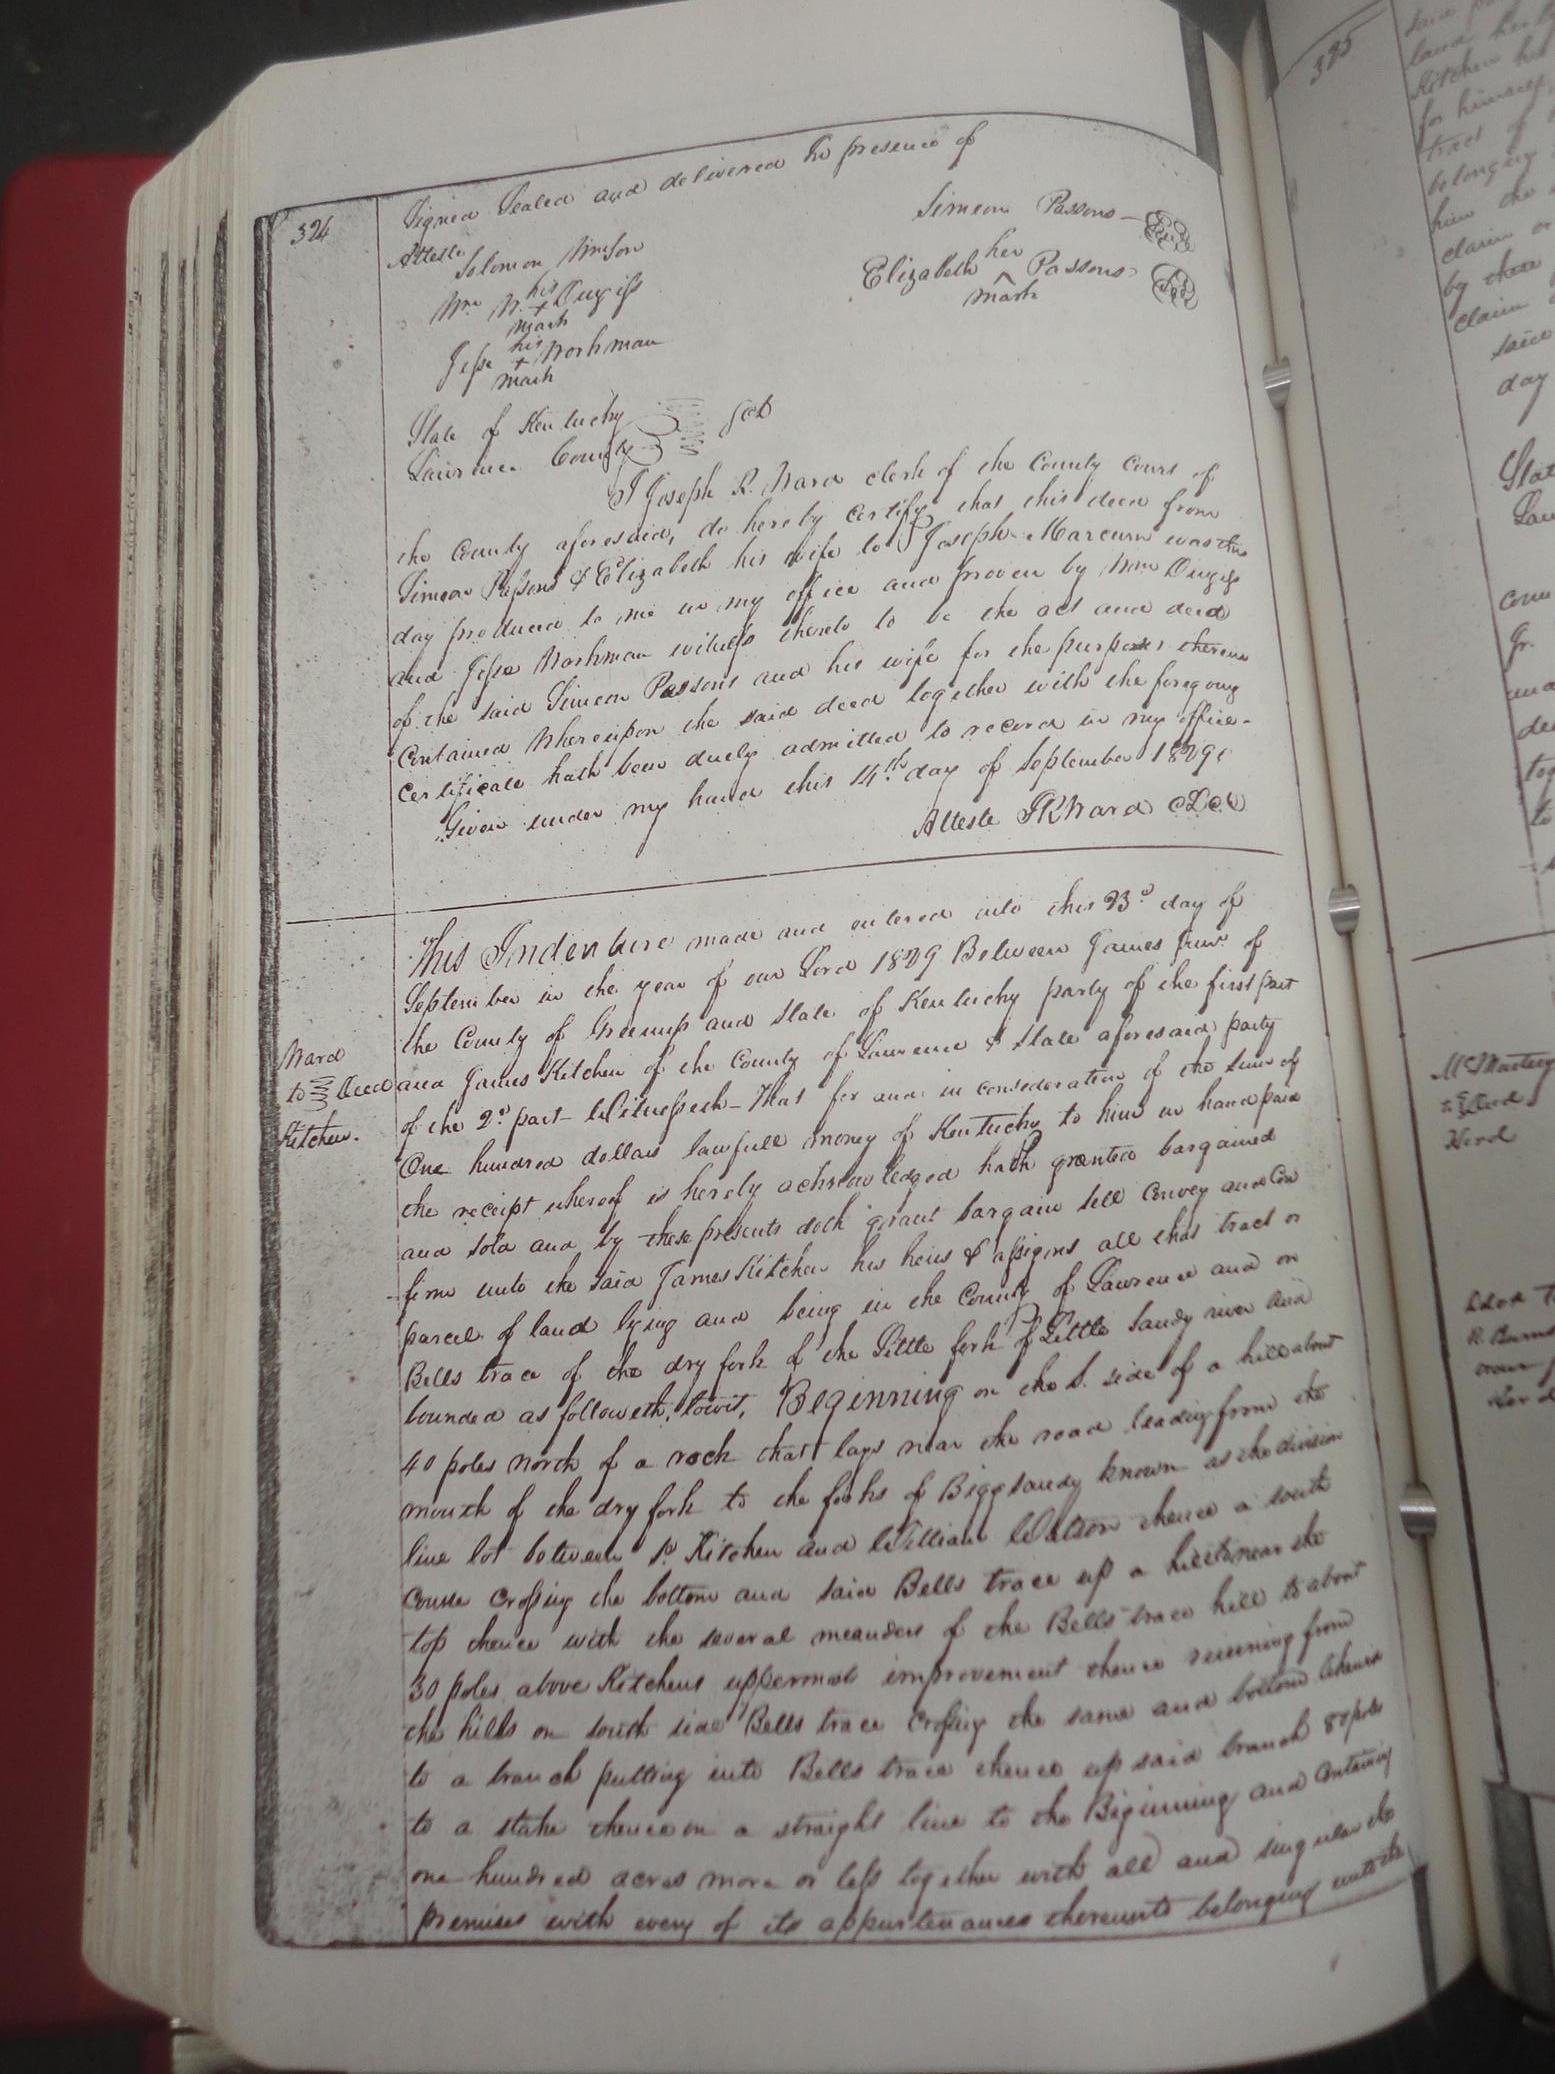 324
Signed Sealed and delivered In presence of
Simeon Passons Seal
Atteste Solomon
her
Elizabeth ^ Passons Seal
mark
his
Wm N. + 
mark
his
Jesse + Workman
mark
State of Kentucky
Lawrence County Sct
I Joseph R. Ward clerk of the County Court of
the County aforesaid, do hereby certify that this deed from
Simeon Passons & Elizabeth his wife to Joseph Marcum was this
day produced to me in my office and proven by Wm
and Jesse Workman witness thereto to be the act and deed
of the said Simeon Passons and his wife for the purposes therein
Contained Whereupon the said deed together with the foregoing
Certificate hath been duely admitted to record in my office.
Given under my hand this 14th day of September 1829
Atteste JRWard CLCC
This Indenture made and entered into this 23d day of
September in the year of our Lord 1829 Between James of
the County of Greenup and State of Kentucky party of the first part
Ward
to Deed
Kitchen.
and James Kitchen of the County of Lawrence & State aforesaid party
of the 2d part Witnesseth - That for and in consideration of the sum of
One hundred dollars lawfull money of Kentucky to him in hand paid
the receipt whereof is hereby acknowledged hath granted bargained
and sold and by these presents doth grant bargain sell Convey and Con
firm unto the said James Kitchen his heirs & assigns all that tract or
parcel of land lying and being in the County of Lawrence and on
Bells trace of the dry fork of the Little fork of Little Sandy river and
bounded as followeth, towit, Beginning on the S. side of a hill about
40 poles north of a rock that lays near the road leading from the
mouth of the dry fork to the forks of Bigg Sandy known as the division
line lot between sd. Kitchen and William Watson thence a south
Course Crossing the bottom and said Bells trace up a hill to near the
top thence with the several meanders of the Bells trace hill to about
30 poles above Kitchens uppermost improvement thence running from
the hills on south side Bells trace Crossing the same and bottom thence
to a branch putting into Bells trace thence up said branch 80 poles
to a stake thence on a straight line to the Biginning and Containing
one hundred acres more or less together with all and singular the
premises with every of its appurtenances thereunto belonging
325
land
Kitchen his
for himself
tract of
belonging
him the
claim or
by
claim
said
day
Stat
Law
coun
Jr.
and
de
tog
to
to Deed
Ward